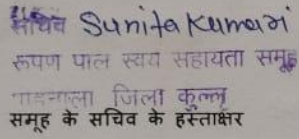 सचिव Sunita Kumari
रूपण पाल स्वयं सहायता समूह
जिला कुल्लू
समूह के सचिव के हस्ताक्षर